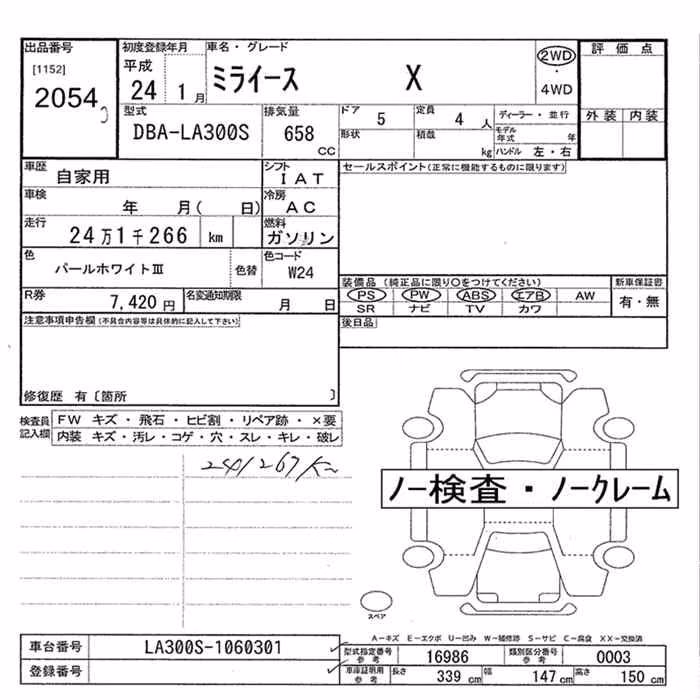 出品番号
[1152]
2054
初度登録年月
平成
24 1月
車名・グレード
ミライース X
2WD
・
4WD
評価点
外装 内装
型式
DBA-LA300S
排気量
658
CC
ドア
5
定員
4 人
形状
積載
kg
ディーラー・並行
モデル年式 年
ハンドル 左・右
車歴
自家用
シフト
IAT
車検
年 月( 日)
冷房
AC
走行
24万1千266 km
燃料
ガソリン
色
パールホワイトⅢ
色替
色コード
W24
R券
7,420 円
名変通知期限
月 日
セールスポイント(正常に機能するものに限ります)
装備品 (純正品に限り○をつけてください)
PS PW ABS エアB AW
SR ナビ TV カワ
新車保証書
有・無
後日品
注意事項申告欄(不具合内容等は具体的に記入して下さい)
修復歴 有〔箇所 〕
検査員記入欄
FW キズ・飛石・ヒビ割・リペア跡・×要
内装 キズ・汚レ・コゲ・穴・スレ・キレ・破レ
241267Km
ノー検査・ノークレーム
スペア
A-キズ E-エクボ U-凹み W-補修跡 S-サビ C-腐食 XX-交換済
車台番号
LA300S-1060301
登録番号
型式指定番号参考
16986
類別区分番号参考
0003
車庫証明用参考
長さ 339 cm 幅 147 cm 高さ 150 cm